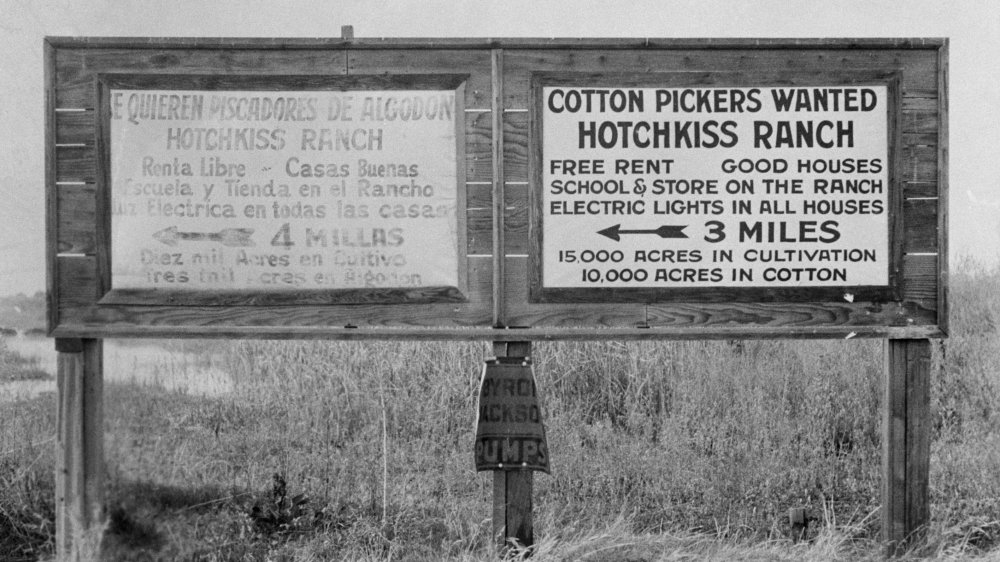 SE QUIEREN PISCADORES DE ALGODON
HOTCHKISS RANCH
Renta Libre - Casas Buenas
Escuela y Tienda en el Rancho
Luz Electrica en todas las casas
4 MILLAS
Diez mil Acres en Cultivo
Tres mil Acres en Algodon
COTTON PICKERS WANTED
HOTCHKISS RANCH
FREE RENT GOOD HOUSES
SCHOOL & STORE ON THE RANCH
ELECTRIC LIGHTS IN ALL HOUSES
3 MILES
15,000 ACRES IN CULTIVATION
10,000 ACRES IN COTTON
BYRON
JACKSON
PUMPS